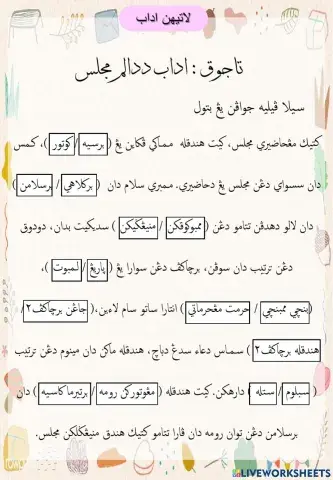 لاتيهن اداب
تاجوق : اداب ددالم مجلس
سيلا ڤيليه جواڤن يڠ بتول
كتيك مڠحاضيري مجلس، كيت هندقله مماكي ڤكاين يڠ ( برسيه / كوتور )، كمس
دان سسواي دڠن مجلس يڠ دحاضيري. ممبري سلام دان ( بركلاهي / برسلامن )
دان لالو دهدڤن تتامو دڠن ( ممبوكوقكن / منيڠݢيكن ) سديكيت بدان، دودوق
دڠن ترتيب دان سوڤن، برچاكڤ دڠن سوارا يڠ ( ڽاريڠ / لمبوت )،
(بنچي ممبنچي / حرمت مڠحرماتي ) انتارا ساتو سام لاءين،( جاڠن برچاكڤ٢ /
هندقله برچاكڤ٢ ) سماس دعاء سدڠ دباچ، هندقله ماكن دان مينوم دڠن ترتيب
( سبلوم / ستله ) دارهكن. كيت هندقله ( مڠوتوركن رومه / برتريماكاسيه ) دان
برسلامن دڠن توان رومه دان ڤارا تتامو كتيك هندق منيڠݢلكن مجلس.
LIVEWORKSHEETS